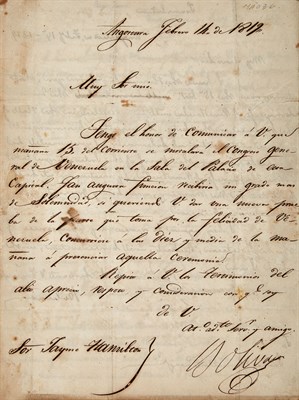 Angostura Febrero 14. de 1819.
Muy Sor mio.
Tengo el honor de comunicar á V. que
mañana 15 del corriente se instalará el Congreso gene-
ral de Venezuela en la Sala del Palacio de esta
Capital. Tan augusta funcion recibirá un grado mas
de Solemnidad, si queriendo V. dar una nueva prue-
ba de la que toma por la felicidad de Ve-
nezuela, concurriese á las diez y media de la ma-
ñana á presenciar aquella Ceremonia.
V. los testimonios del
alto aprecio, y consideracion con q.e soy
de V.
Serv.r y amigo
Sor Jayme Hamilton
Bolivar